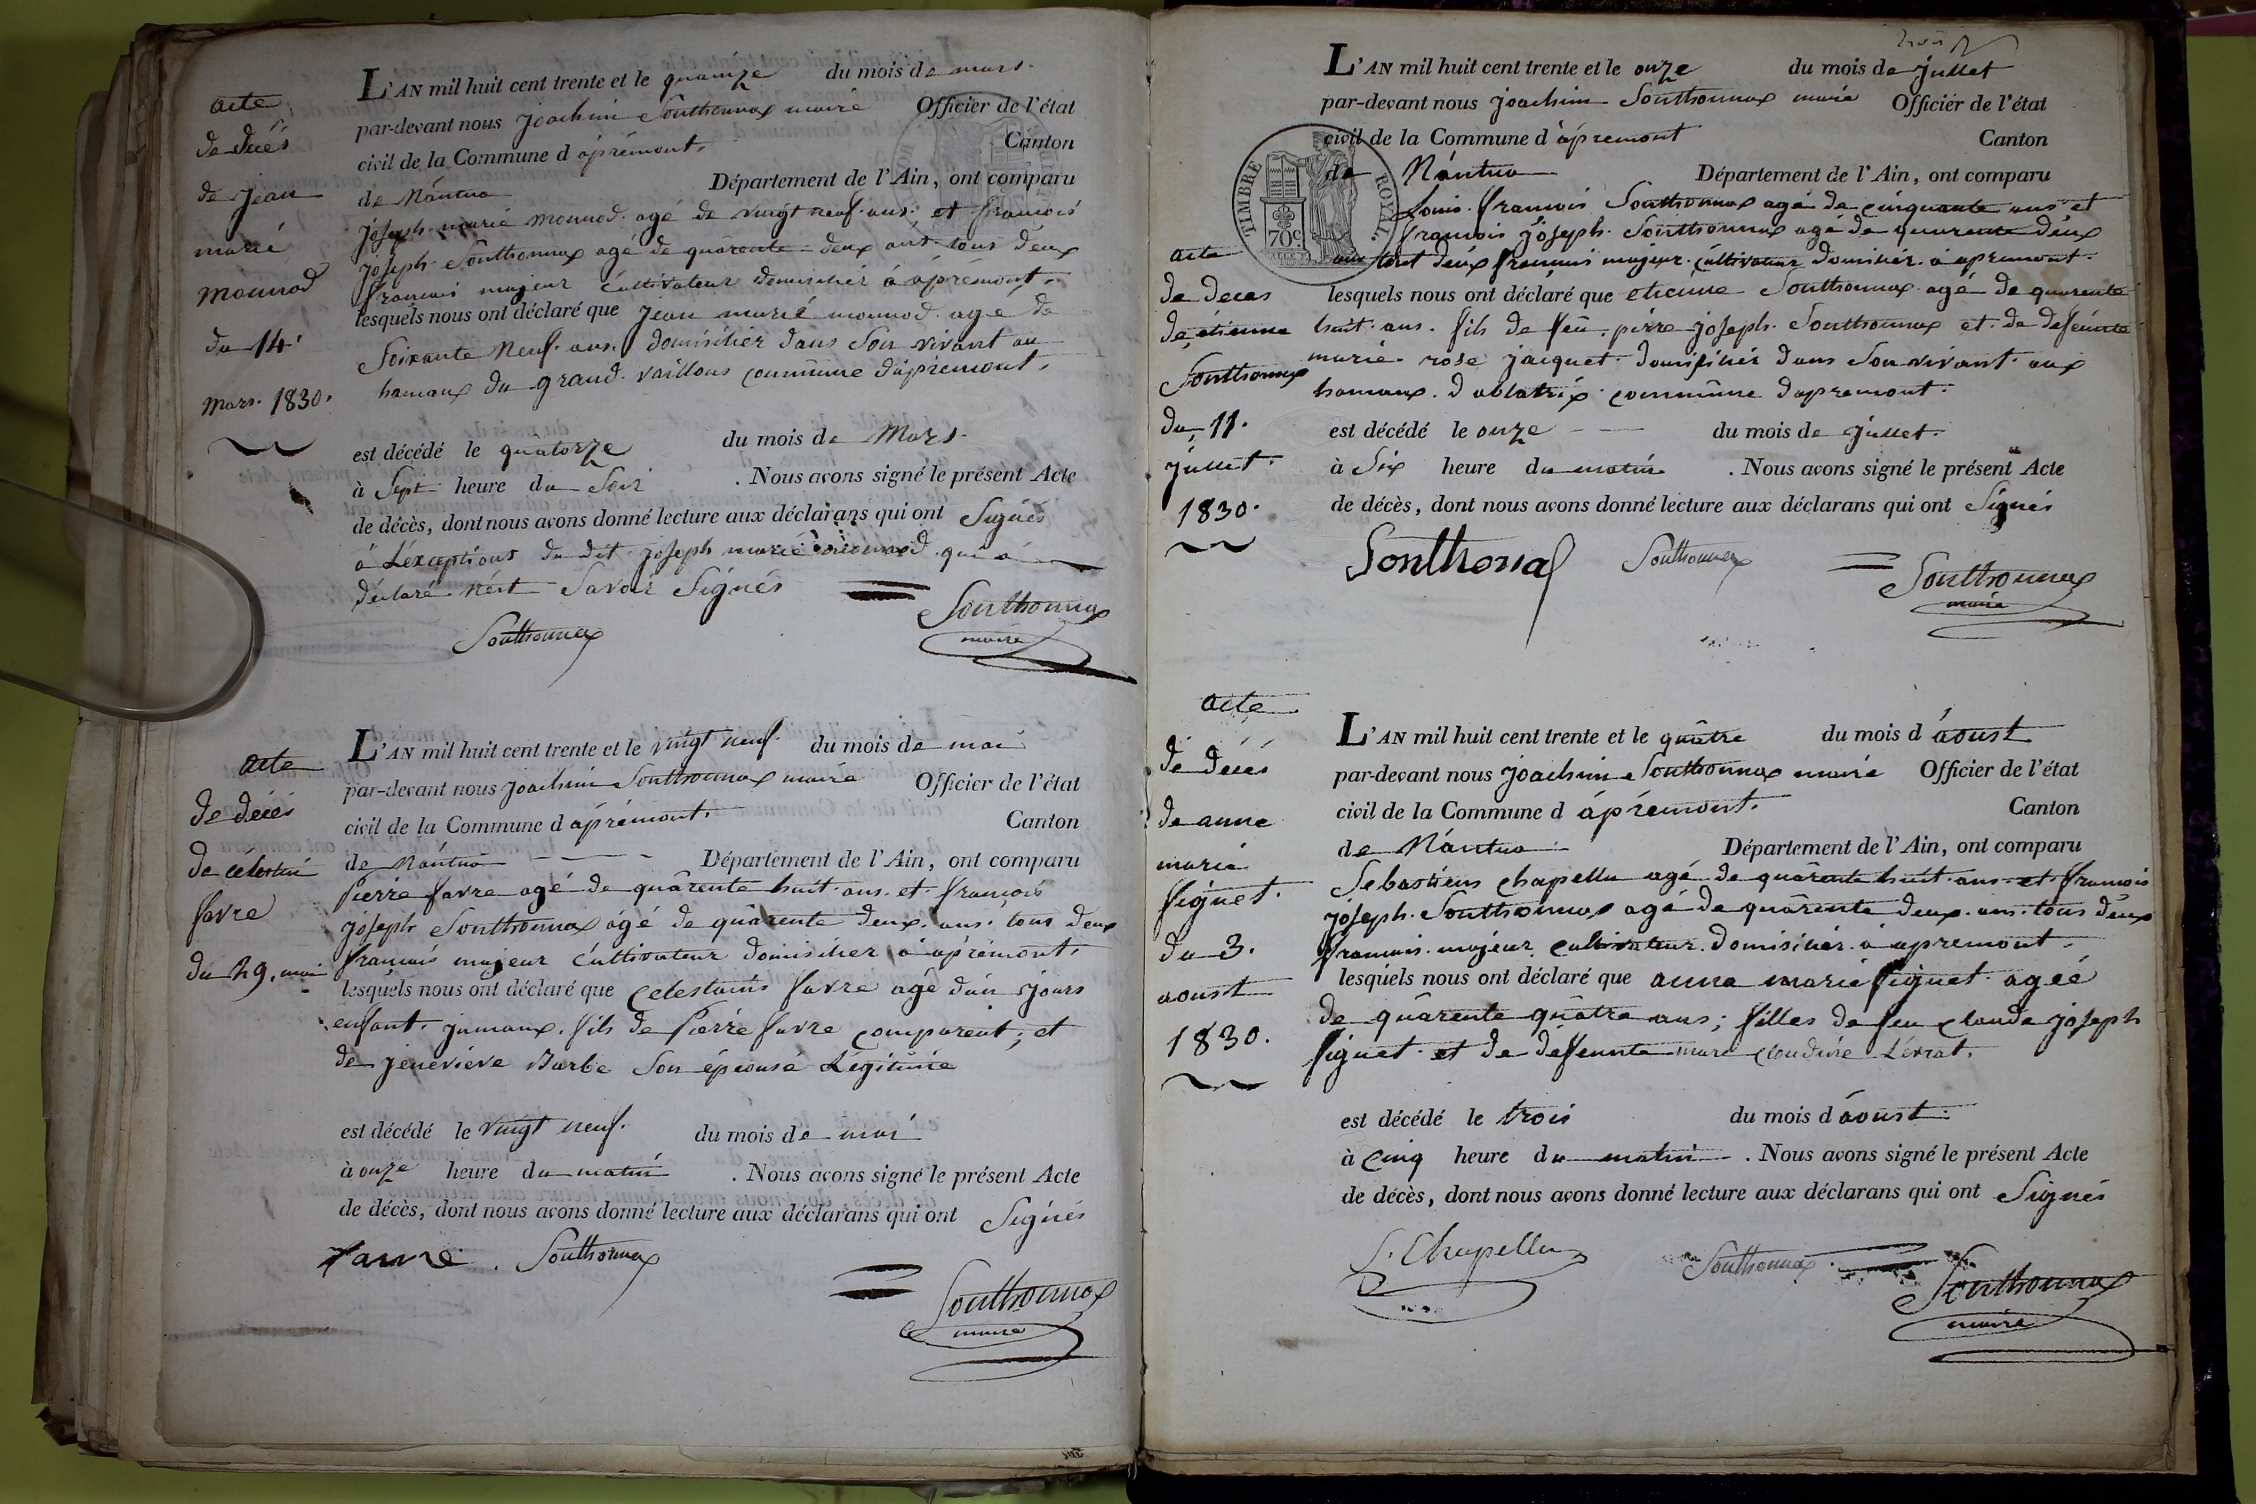 acte
de décés
de jean
marié
monnod
du 14.
mars. 1830.
L'AN mil huit cent trente et le quainze du mois de mars.
par-devant nous joachim Sonthonnax maire Officier de l'état
civil de la Commune d'áprémont. Canton
de Nántua Département de l'Ain, ont comparu
joseph marié monnod. agé de vingt neuf. ans. et francois
joseph Sonthonnax agé de quârente deux ans. tous deux
francais majeur cultivateur domicilier à áprémont.
lesquels nous ont déclaré que jean marié monnod. agé de
Soixante Neuf. ans. domisilier dans Son vivant au
hamaux du grand. vaillons commune dápremont.
est décédé le quâtorze du mois de Mars.
à Sept heure du Soir . Nous avons signé le présent Acte
de décès, dont nous avons donné lecture aux déclarans qui ont Signés
à Léxceptions du dit joseph marié monnod. qui á
déclaré nést Savoir Signés
Sonthonnax
Sonthonnax
maire
acte
de décés
de célestin
favre
du 29. mai
L'AN mil huit cent trente et le vingt neuf. du mois de mai
par-devant nous joachim Sonthonnax maire Officier de l'état
civil de la Commune d áprémont. Canton
de Nántua Département de l'Ain, ont comparu
Pierre favre agé de quârente huit ans. et. francois
joseph Sonthonnax ágé de quârente deux. ans. tous deux
francais majeur cultivateur domicilier à áprémont.
lesquels nous ont déclaré que celestain favre agé dún jours
enfant. jumaux. fils de Pierre favre comparent; et
de jenéviéve Barbe Son épousé Légitimé
est décédé le vingt neuf. du mois de mai
à onze heure du matin . Nous avons signé le présent Acte
de décès, dont nous avons donné lecture aux déclarans qui ont Signés
favre. Sonthonnax
Sonthonnax
maire
trois
TIMBRE ROYAL.
70c
acte
de deces
de étienne
Sonthonnax
du 11.
juillet.
1830.
L'AN mil huit cent trente et le onze du mois de juillet
par-devant nous joachim Sonthonnax maire Officier de l'état
civil de la Commune d'ápremont Canton
de Nántua Département de l'Ain, ont comparu
Louis. francois Sonthonnax agé de cinquante ans et
francois joseph. Sonthonnax agé de quarente deux
ans tout deux francais majeur. cultivateur domicilier. à apremont.
lesquels nous ont déclaré que etienne Sonthonnax. agé de quarente
huit. ans. fils de feu. pierre joseph. Sonthonnax et. de defeunte
marie. rose jacquet. domisilier dans Son vivant. aux
hamaux. d ablatrix commune dapremont.
est décédé le onze du mois de juillet.
à Six heure du matin . Nous avons signé le présent Acte
de décès, dont nous avons donné lecture aux déclarans qui ont Signés
Sonthonax Sonthonnax
Sonthonnax
maire
acte
de décés
de anne
marie
figuet.
du 3.
aoust
1830.
L'AN mil huit cent trente et le quâtre du mois d'áoust
par-devant nous joachim Sonthonnax maire Officier de l'état
civil de la Commune d ápremont. Canton
de Nántua Département de l'Ain, ont comparu
Sebastiens chapellu agé de quârente huit. ans. et. francois
joseph. Sonthonnax agé de quârente deux. ans. tous deux
francais. majeur cultivateur. domisilier. à apremont.
lesquels nous ont déclaré que anne marie figuet. agéé
de quârente quâtre ans; filles de feu claude joseph
figuet. et de défeunte marie claudine Lévrat.
est décédé le trois du mois d'áoust.
à Cinq heure du matin . Nous avons signé le présent Acte
de décès, dont nous avons donné lecture aux déclarans qui ont Signés
S. Chapellu Sonthonnax
Sonthonnax
maire